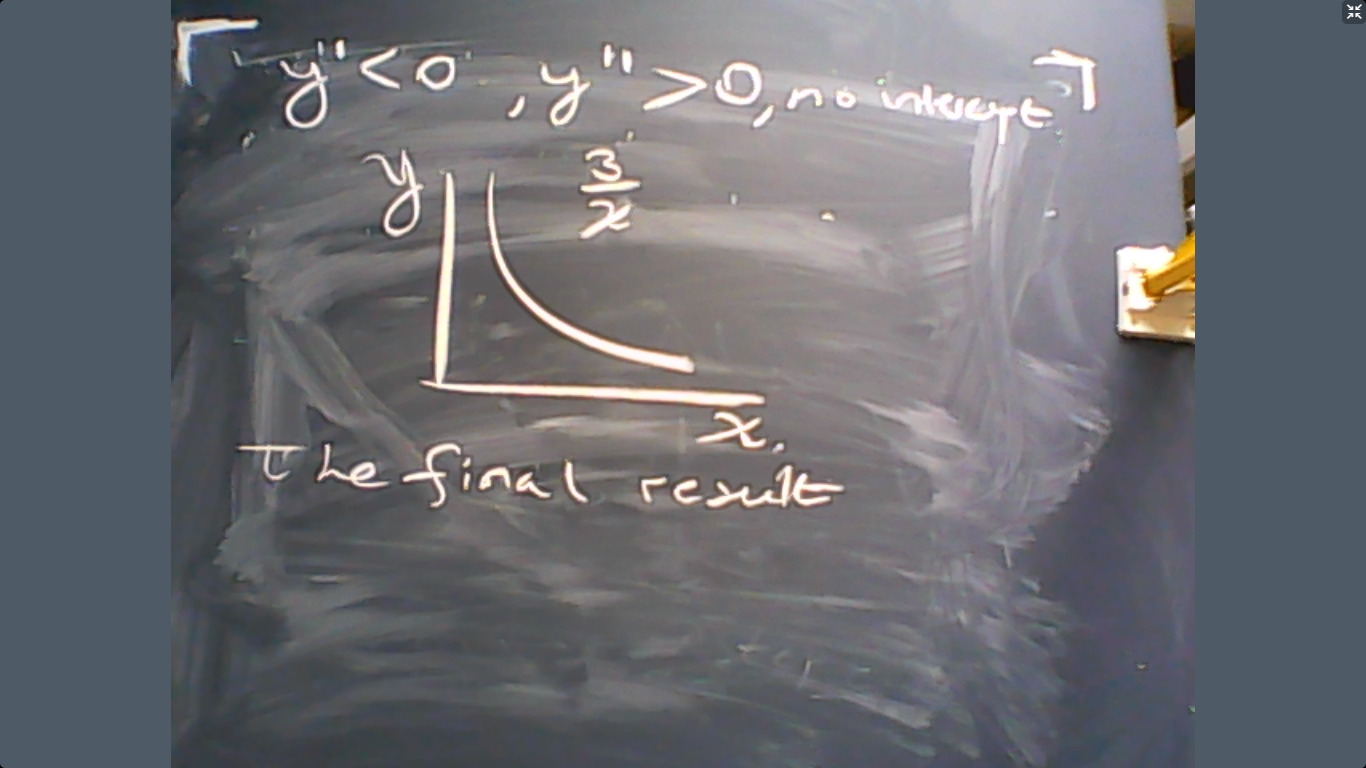 y'' < 0, y'' > 0, no intercept
y
3/x
x.
The final result